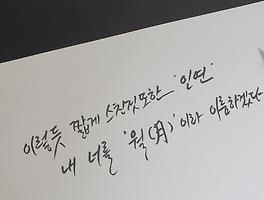 이렇듯 짧게 스친것또한 '인연'
내 너를 '월(月)'이라 이름하겠다